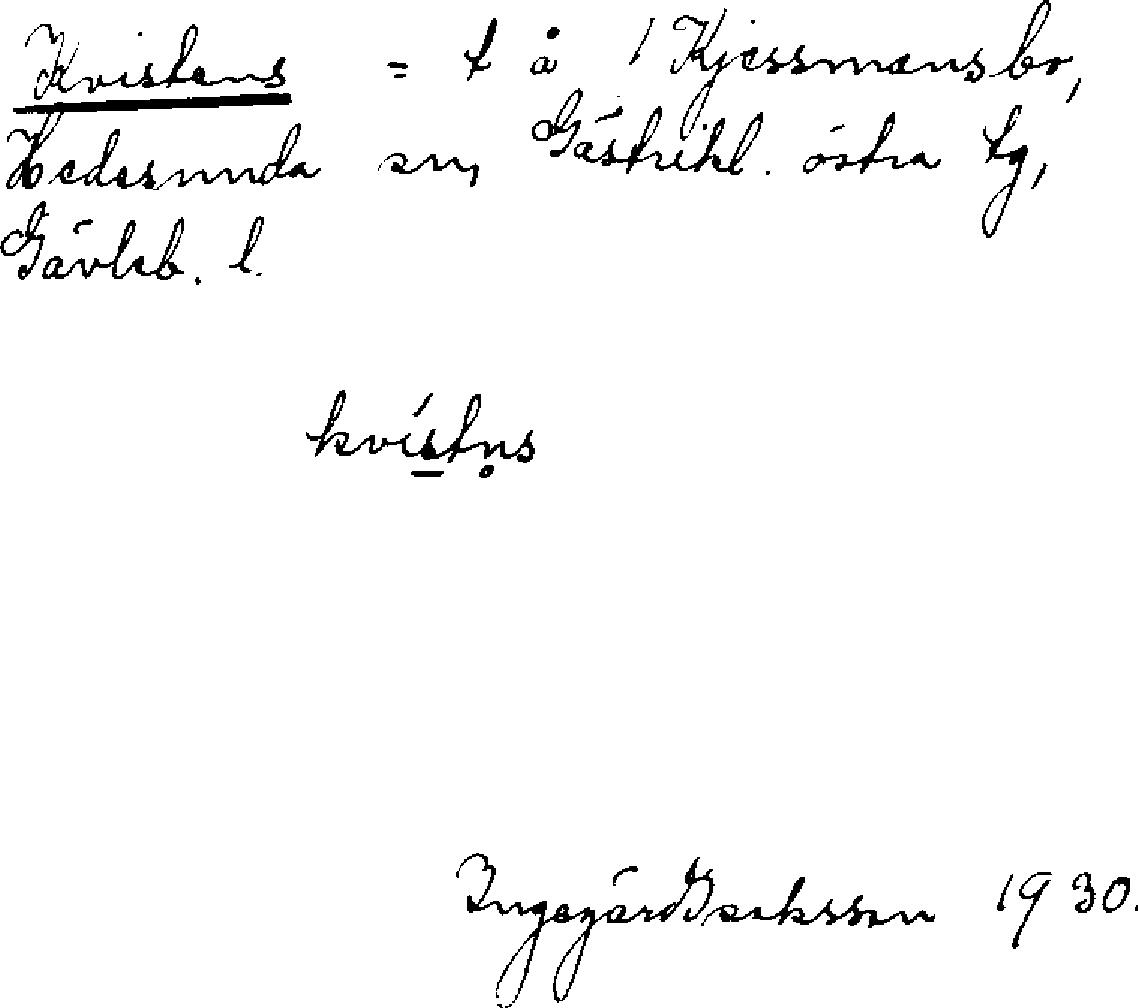 Kvistens = t å 1 Kjessmansbo,
Hedesunda sn, Gästrikl. östra tg,
Gävleb. l.
kvístn̥s
Ingegärd Isaksson 1930.